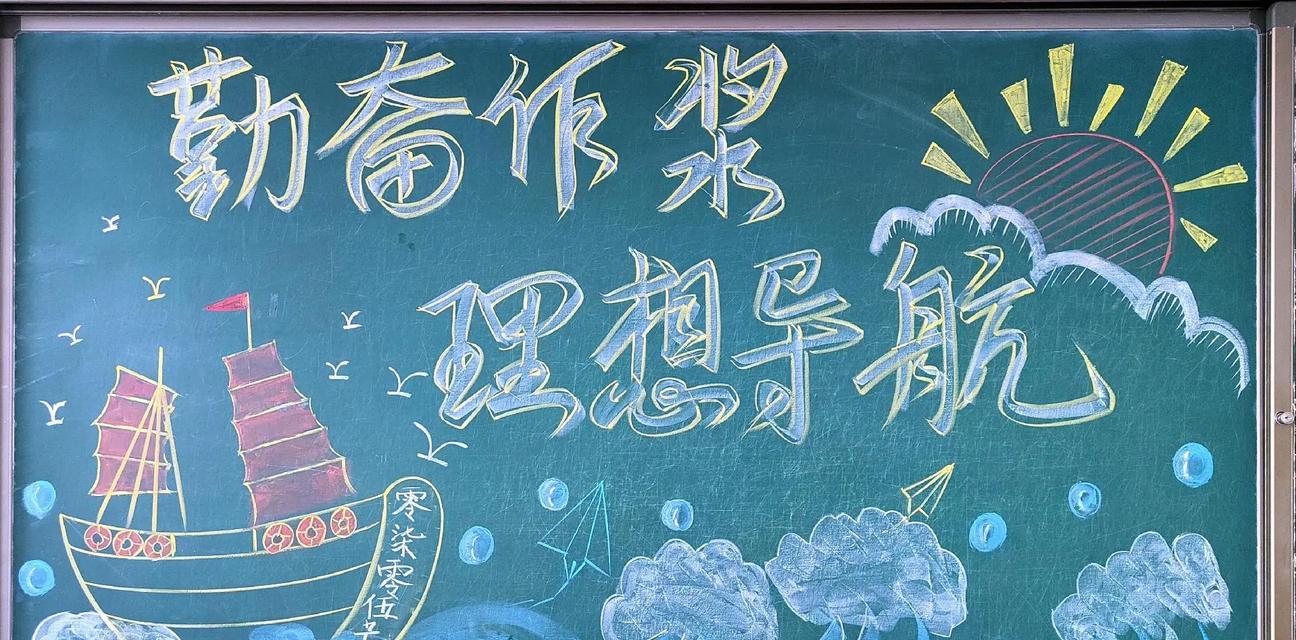 勤奋作浆
理想导航
零柒零伍号